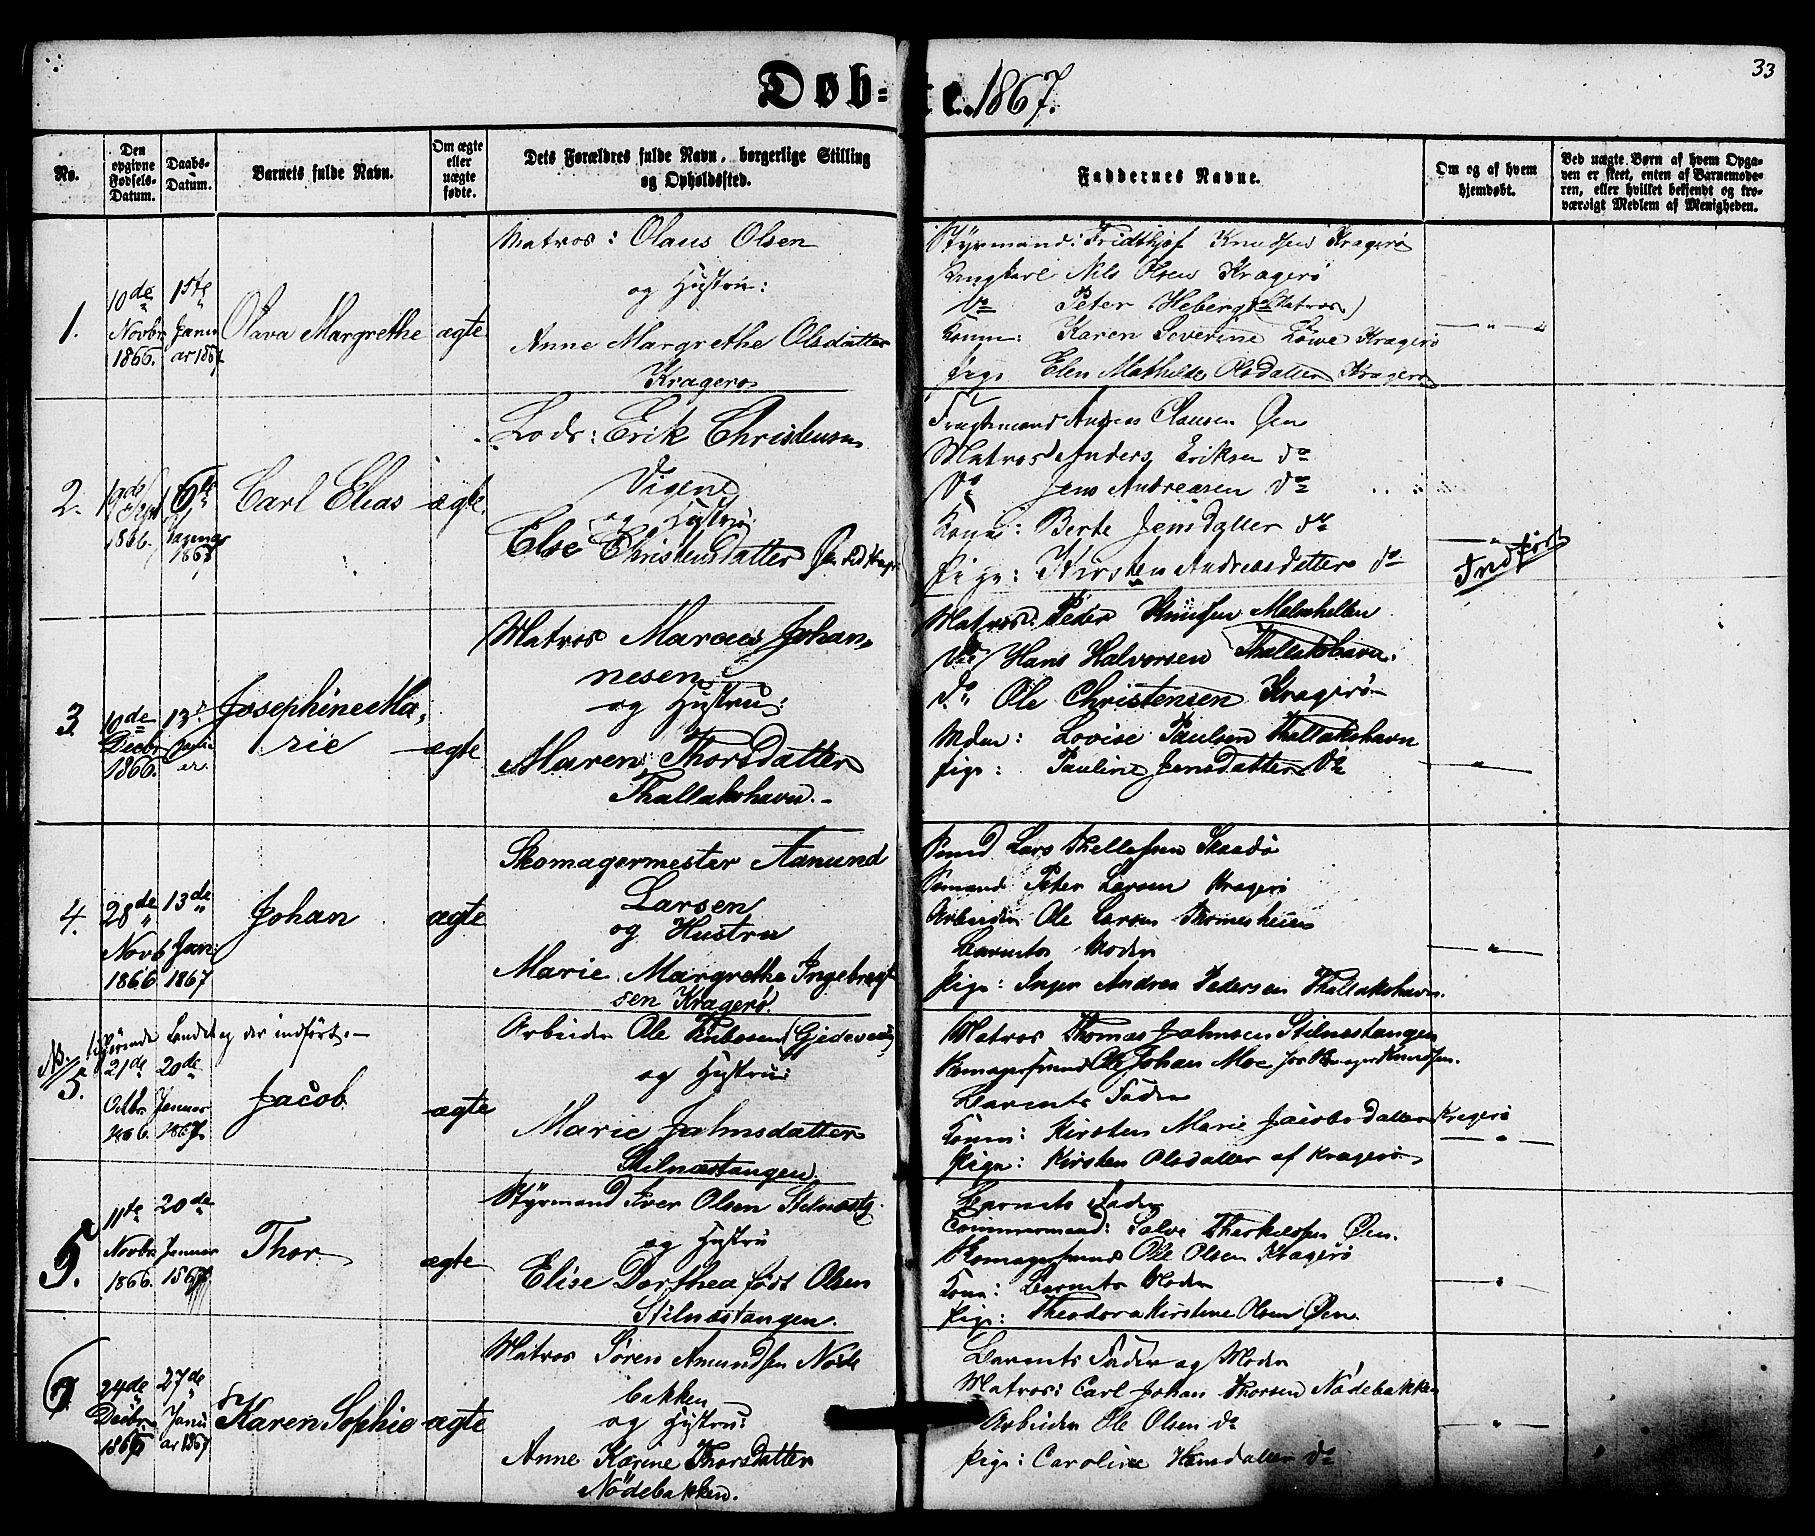 33
Døb=te. 1867.
No.
Den opgivne Fødsels-Datum.
Daabs-Datum.
Barnets fulde Navn.
Om ægte eller uægte fødte.
Dets Forældres fulde Navn, borgerlige Stilling og Opholdssted.
Faddernes Navne.
Om og af hvem hjemdøbt.
Ved uægte Børn af hvem Opga-
ven er skeet, enten af Barnemode-
ren, eller hvilket bekjendt og tro-
værdigt Medlem af Menigheden.
1.
10de Novbr 1866.
1ste Janu ar 1867
Olava Margrethe
ægte
Matros: Olaus Olsen
og Hustru:
Anne Margrethe Olsdatter
Kragerø
Styrmand: Fridthjof Knudsen Kragerø
Ungkarl Nils Olsen Kragerø
Do Peter Heberg (Matros)
Kone: Karen Severine Löwe Kragerø
Pige Elen Mathilde Olsdatter Kragerø
2.
1866.
6te 1867
Carl Elias
ægte
Lods: Erik Christensen
Vigene
og Hustru:
Else Christensdatter Øen ved Krag
Fragtmand Anders Clausen Øen
Matros Anders Eriksen do
Do Jens Andreasen do
Kone: Berte Jensdatter do
Pige: Kirsten Andreasdatter do
Indført
3.
10de Decbr 1866.
13de Janu ar.
Josephine Ma,
rie
ægte
Matros Marcus Johan,
nesen
og Hustru:
Maren Thorsdatter
Thallakshavn.
Matros: Peder Knudsen
Do Hans Halvorsen Thallakshavn.
do Ole Christensen Kragerø
Lovise Paulsen Thallakshavn
Pige: Pauline Jensdatter Do
4.
28de Novb 1866
13de Jan: 1867
Johan
ægte
Skomagermester Aanund
Larsen
og Hustru
Marie Margrethe Ingebregt
sen Kragerø.
Lars Thellefsen Skaadø
Sømand Peter Larsen Kragerø
Arbeider Ole Larsen
Barnets Moder
Pige: Inger Andrea Pedersen Thallakshavn.
Nb. tilhørende Landet og der indført.
5.
21de Octbr 1866.
20de Januar 1867.
Jacob
ægte
Arbeider Ole (Gjedevei)
og Hustru:
Marie Jahnsdatter
Stilnæstangen.
Matros Thomas Jahnsen Stilnæstangen
Skomagersvend Ole Johan Moe
Barnets Fader
Kone: Kirsten Marie Jacobsdatter Kragerø
Pige: Kirsten Olsdatter af Kragerø
5.
11te Novbr 1866.
20de Januar 1867
Thor
ægte
Styrmand Iver Olsen Stilnæstg.
og Hustru
Elise Dorthea født Olsen
Stilnæstangen.
Barnets Fader
Tømmermand: Salve Therkelsen Øen.
Skomagersvend Ole Olsen Kragerø
Kone: Barnets Moder
Pige: Theodora Kirstine Olsen Øen
6
24de Decbr 1866
27de Janu ar 1867
Karen Sophie
ægte
Matros Søren Amundsen Nöde
bakken
og Hustru:
Anne Karine Thorsdatter
Nödebakken.
Barnets Fader og Moder
Matros: Carl Johan Thorsen Nödebakken
Arbeider Ole Olsen do
Pige: Caroline Hansdatter do